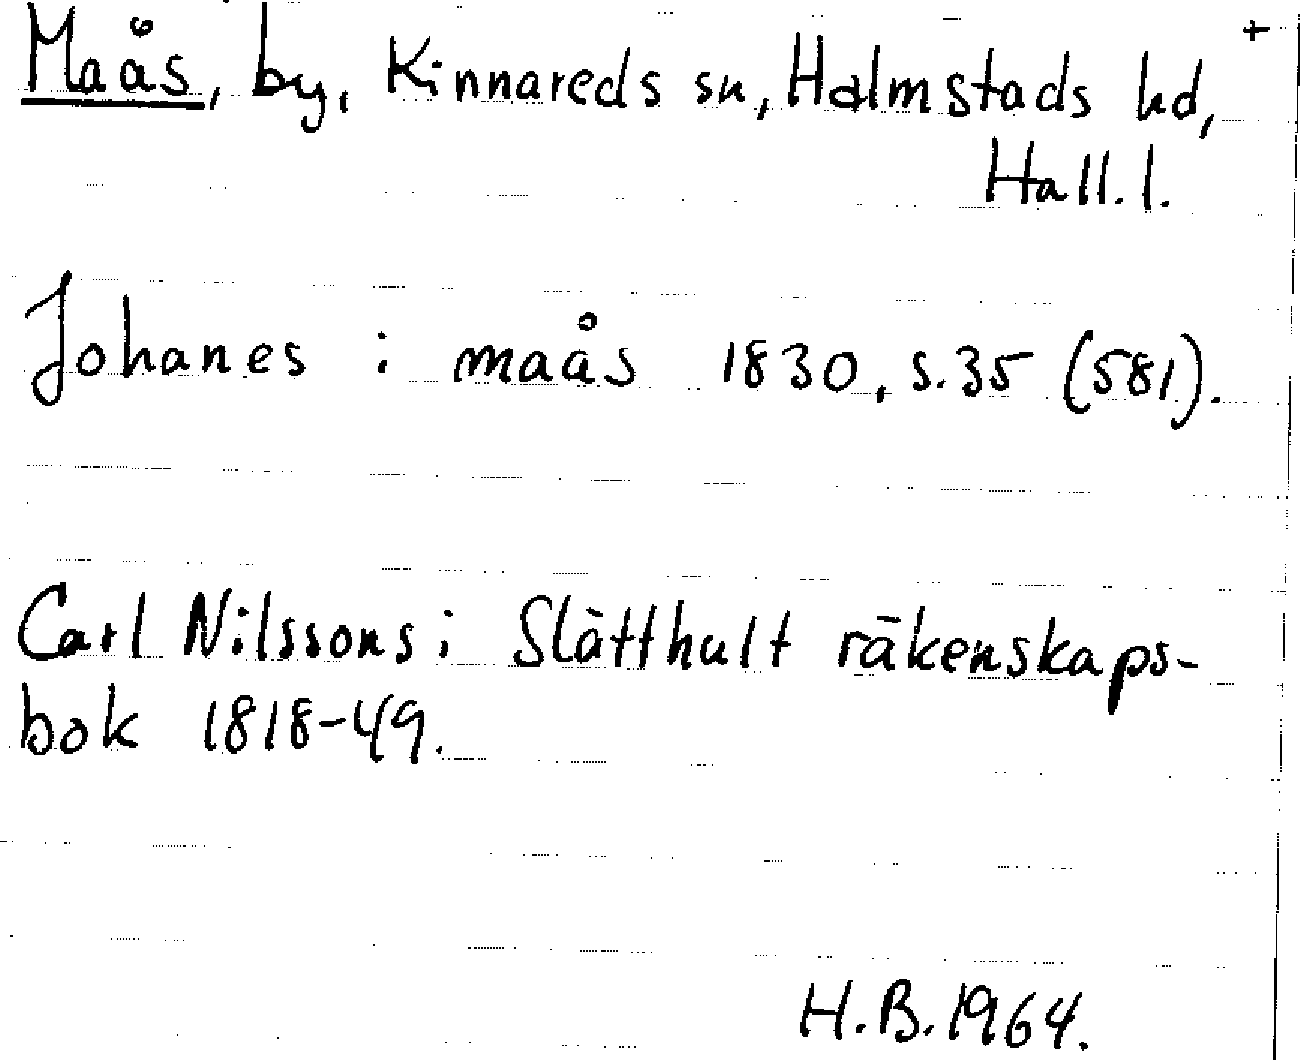 +
Maås, by, Kinnareds sn, Halmstads hd,
Hall. l.
Johanes i maås 1830, s. 35 (581).
Carl Nilssons i Slätthult räkenskaps-
bok 1818-49.
H.B. 1964.